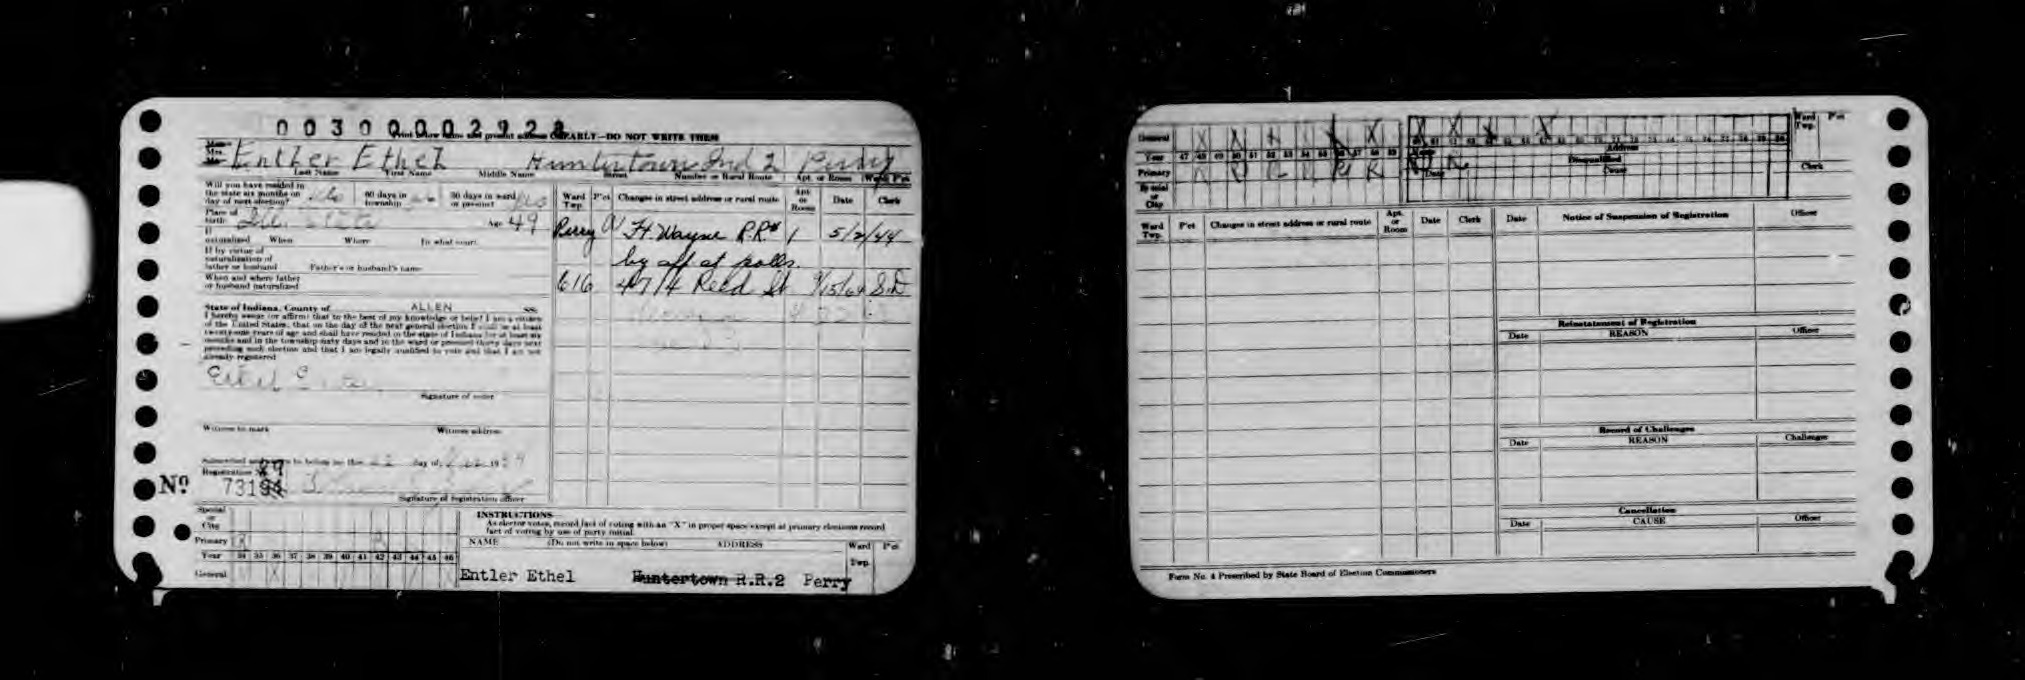 003000029
CLEARLY—DO NOT WRITE THEM
Entler Ethel Huntertown Ind 2 Perry
Last Name First Name Middle Name Street Number or Rural Route Apt. or Room Ward P'ct
Will you have resided in the state six months on day of next election? 60 days in township 30 days in ward or precinct yes
Place of birth Age 49
If naturalized When Where In what court
If by virtue of naturalization of father or husband Father's or husband's name
When and where father or husband naturalized
State of Indiana, County of ALLEN ss:
I hereby swear (or affirm) that to the best of my knowledge or belief I am a citizen
of the United States, that on the day of the next general election I shall be at least
twenty-one years of age and shall have resided in the state of Indiana for at least six
months and in the township sixty days and in the ward or precinct thirty days next
preceding such election and that I am legally qualified to vote and that I am not
already registered
Ethel Entler
Signature of voter
Witness to mark Witness address
Subscribed and sworn to before me this 22 day of 19
Registration
No. 731
Signature of registration officer
Ward Twp. P'ct Changes in street address or rural route Apt. or Room Date Clerk
Perry Ft Wayne R.R.# 1 5/2/44
by aff at polls.
616 4714 Reed St 9/15/64 S.D
Special or City
Primary
Year 34 35 36 37 38 39 40 41 42 43 44 45 46
General
INSTRUCTIONS
As elector votes, record fact of voting with an "X" in proper space except at primary elections record
fact of voting by use of party initial.
NAME (Do not write in space below) ADDRESS Ward Twp. P'ct
Entler Ethel Huntertown R.R.2 Perry
General X X X X
Year 47 48 49 50 51 52 53 54 55 56 57 58 59
Primary R R R R
Special or City
Name Address
Disqualified
Date Court
Ward Twp. P'ct
Clerk
Ward Twp. P'ct Changes in street address or rural route Apt. or Room Date Clerk
Date Notice of Suspension of Registration Officer
Reinstatement of Registration
Date REASON Officer
Record of Challenges
Date REASON Challenger
Cancellation
Date CAUSE Officer
Form No. 4 Prescribed by State Board of Election Commissioners